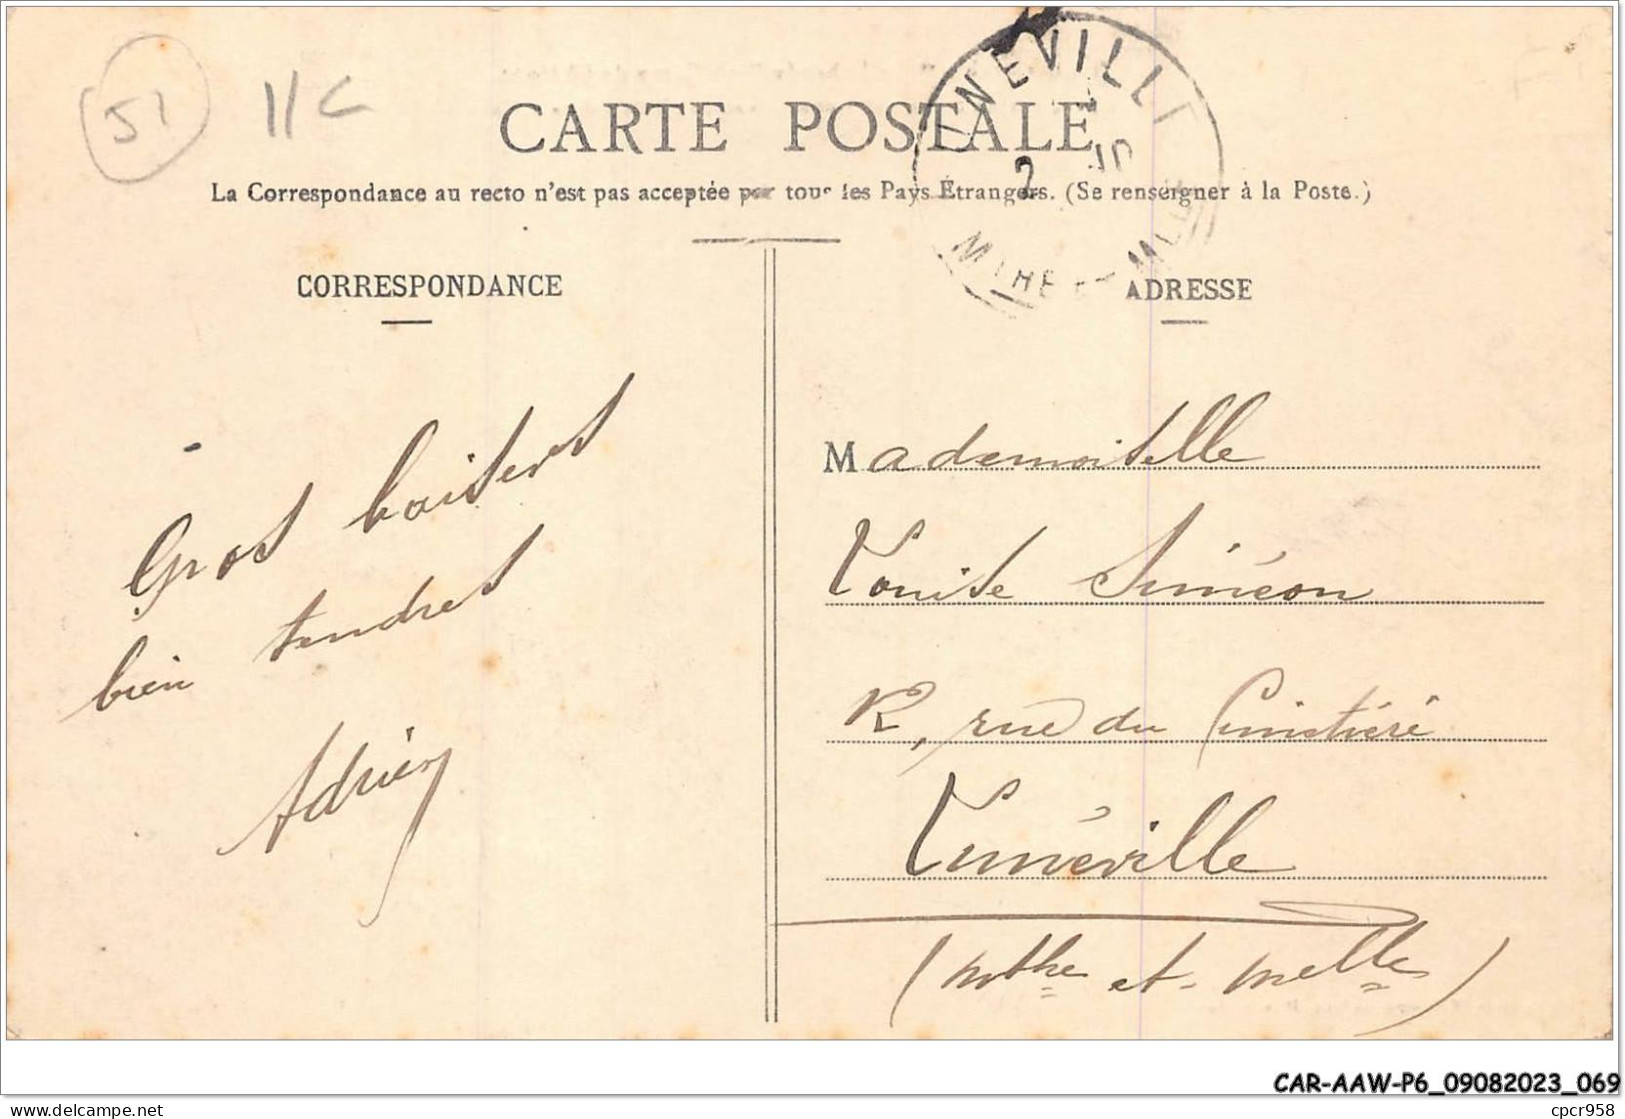 51
11c
CARTE POSTALE
La Correspondance au recto n'est pas acceptée par tous les Pays Étrangers. (Se renseigner à la Poste.)
CORRESPONDANCE
Gros baisers
bien tendres
Adrien
ADRESSE
Mademoiselle
Louise Siméon
R, rue du Cimetière
Lunéville
(Mthe et Melle)
2 10
MTHE ET MLLE
CAR-AAW-P6_09082023_069
delcampe.net
cpcr958